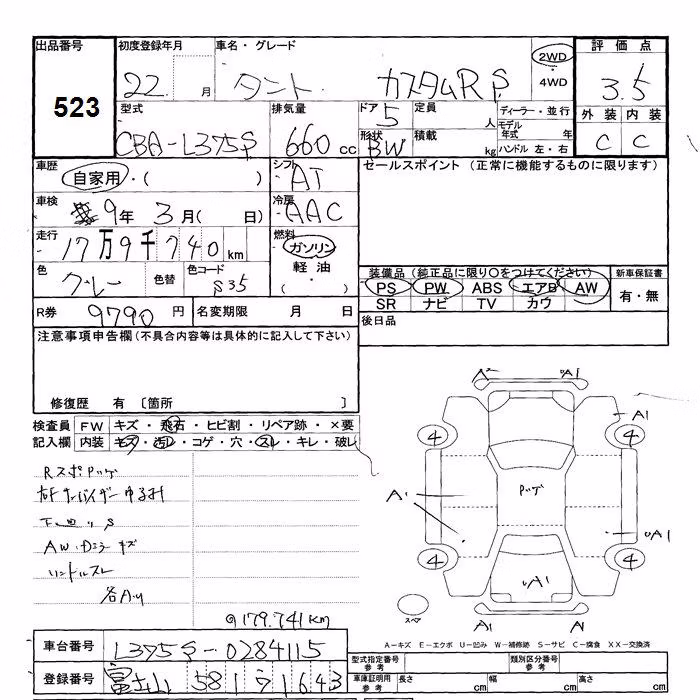 出品番号 523
初度登録年月 22 月
車名・グレード タント カスタムRS
2WD・4WD
評価点 3.5
外装 C 内装 C
型式 CBA-L375S
排気量 660 cc
ドア 5
形状 BW
定員 人
積載 kg
ディーラー・並行
モデル年式 年
ハンドル 左・右
車歴 自家用・( )
シフト AT
セールスポイント (正常に機能するものに限ります)
車検 9年 3月( 日)
冷房 AAC
走行 17万9千740km
燃料 ガソリン
軽油
( ・ )
色 グレー 色替 色コード S35
装備品(純正品に限り○をつけてください) 新車保証書
PS PW ABS エアB AW 有・無
SR ナビ TV カワ
R券 9790 円 名変期限 月 日
後日品
注意事項申告欄(不具合内容等は具体的に記入して下さい)
修復歴 有 〔箇所 〕
検査員 FW キズ・飛石・ヒビ割・リペア跡・×要
記入欄 内装 キズ・汚レ・コゲ・穴・スレ・キレ・破レ
Rスポ Pッゲ
下廻りS
AW・Dミラーキズ
ハンドルスレ
各Aリ
@179.741km
A² UA1
A1
4 4
A1 Pッゲ UA1
4 4
UA1
スペア A1 A1
A-キズ E-エクボ U-凹み W-補修跡 S-サビ C-腐食 XX-交換済
車台番号 L375S-0284115
型式指定番号 参考 類別区分番号 参考
登録番号 富士山 581 7 1643
車庫証明用 参考 長さ cm 幅 cm 高さ cm